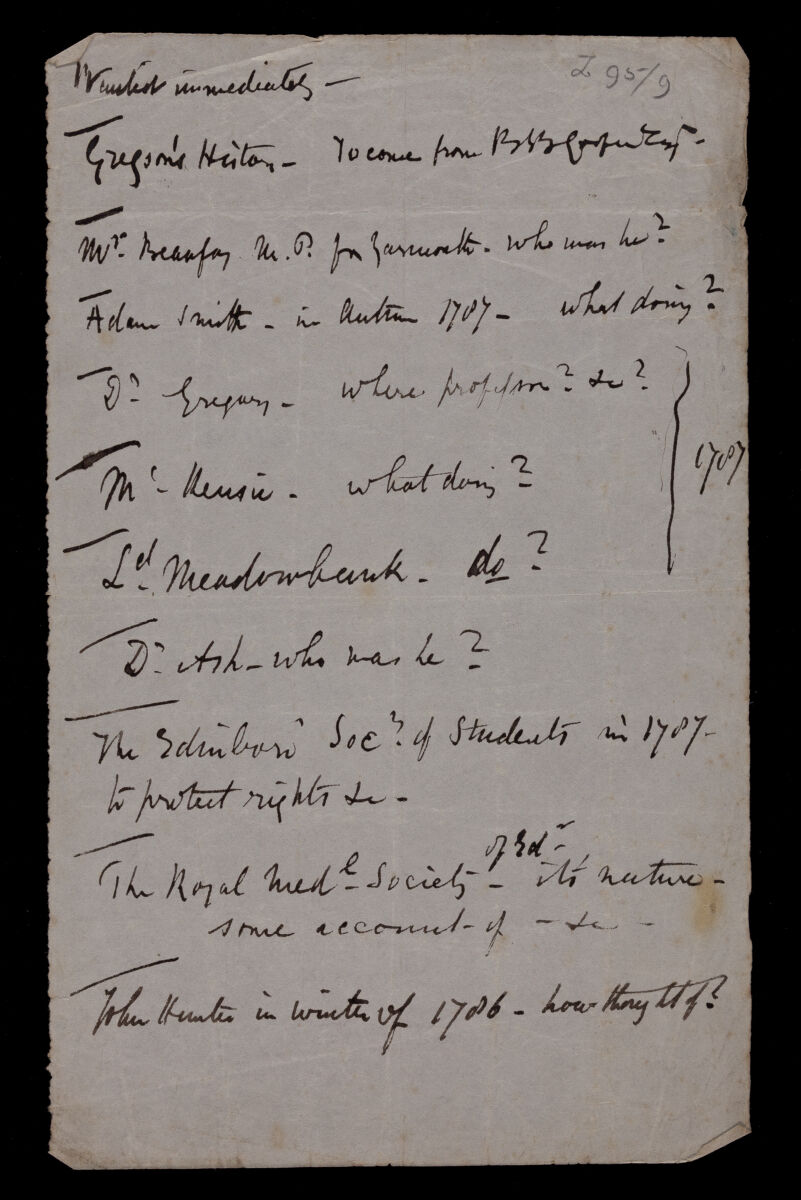 Wanted immediately -
Z 95/9
Gregson's History - To come from
Mr. Beaufoy M.P. for Yarmouth - who was he?
Adam Smith - in Autumn 1787 - what doing?
Dr Gregory - where professor? &c?
1787
Mc Kensie - what doing?
Ld. Meadowbank - do?
Dr Ash - who was he?
The Edinboro' Socy of Students in 1787 -
to protect rights &c -
The Royal Medl Society of Edr - it's nature -
some account - of - &c -
John Hunter in winter of 1786 - how thought of?